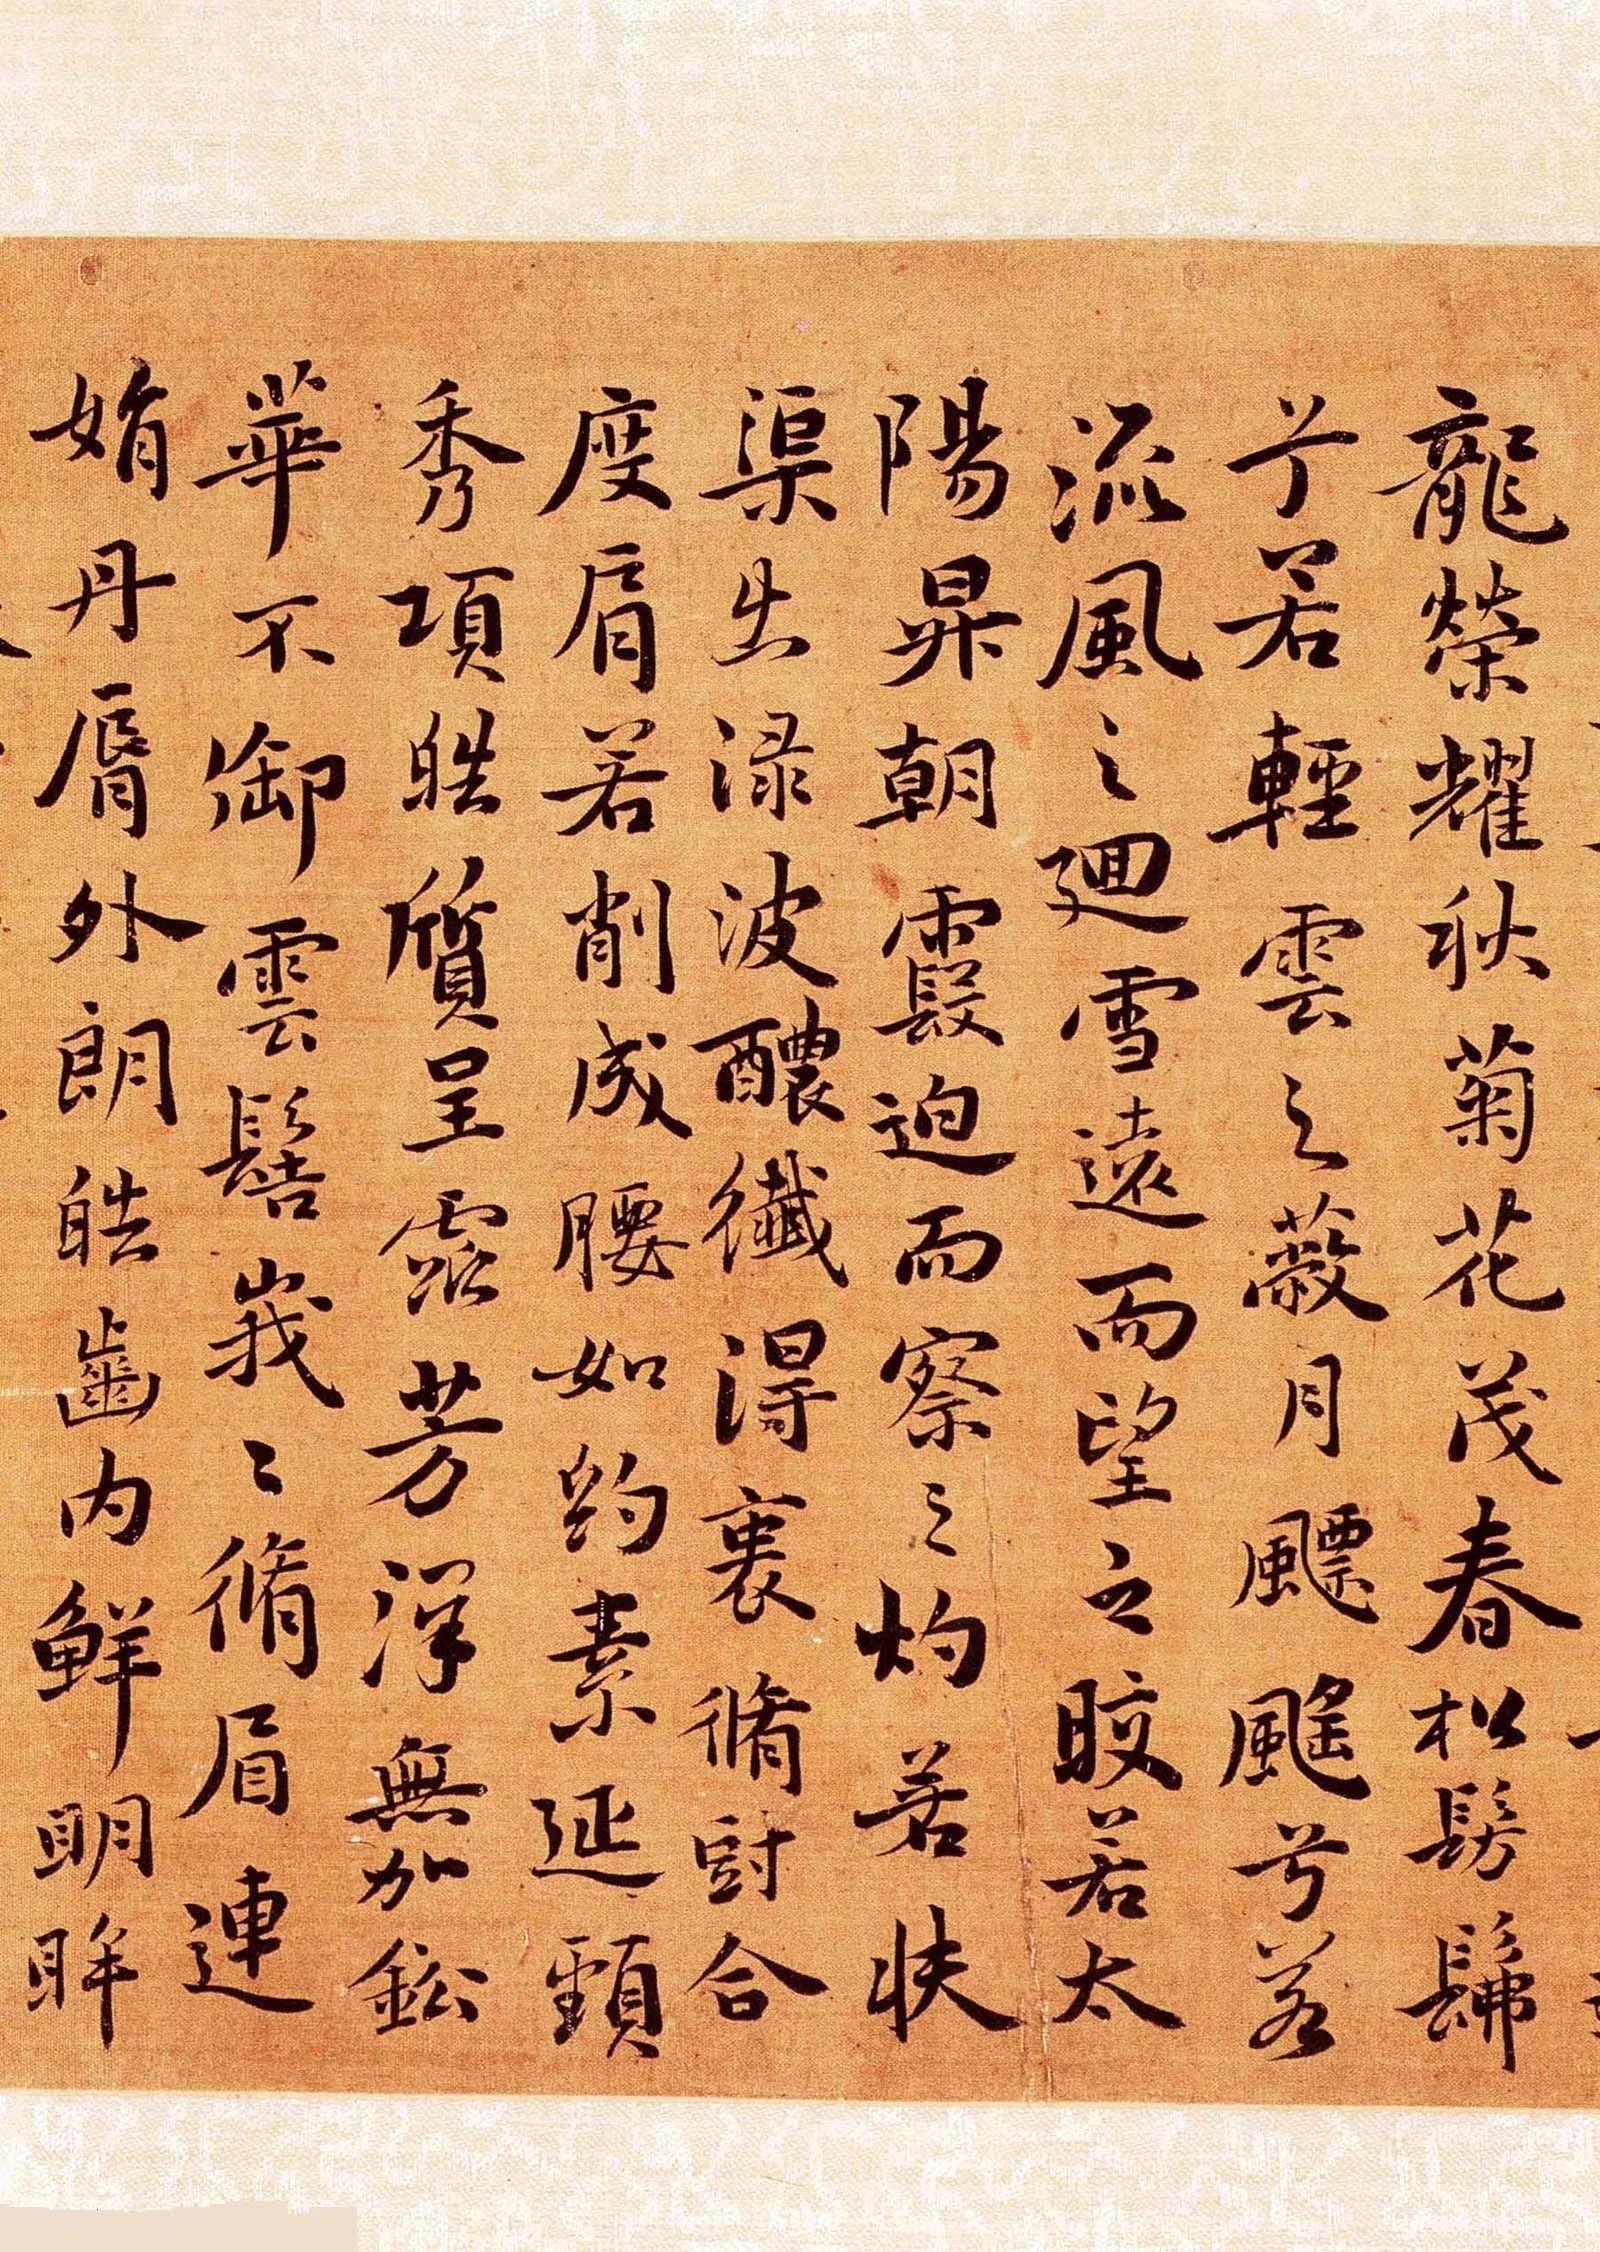 龍榮耀秋菊花茂春松髣髴
兮若輕雲之蔽月飄颻兮若
流風之廻雪遠而望之皎若太
陽昇朝霞迫而察之灼若扶
渠出渌波醲纖得衷脩短合
度肩若削成腰如約素延頸
秀項皓質呈露芳澤無加鈆
華不御雲髻峩〻脩眉連
娟丹脣外朗皓齒内鮮明眸